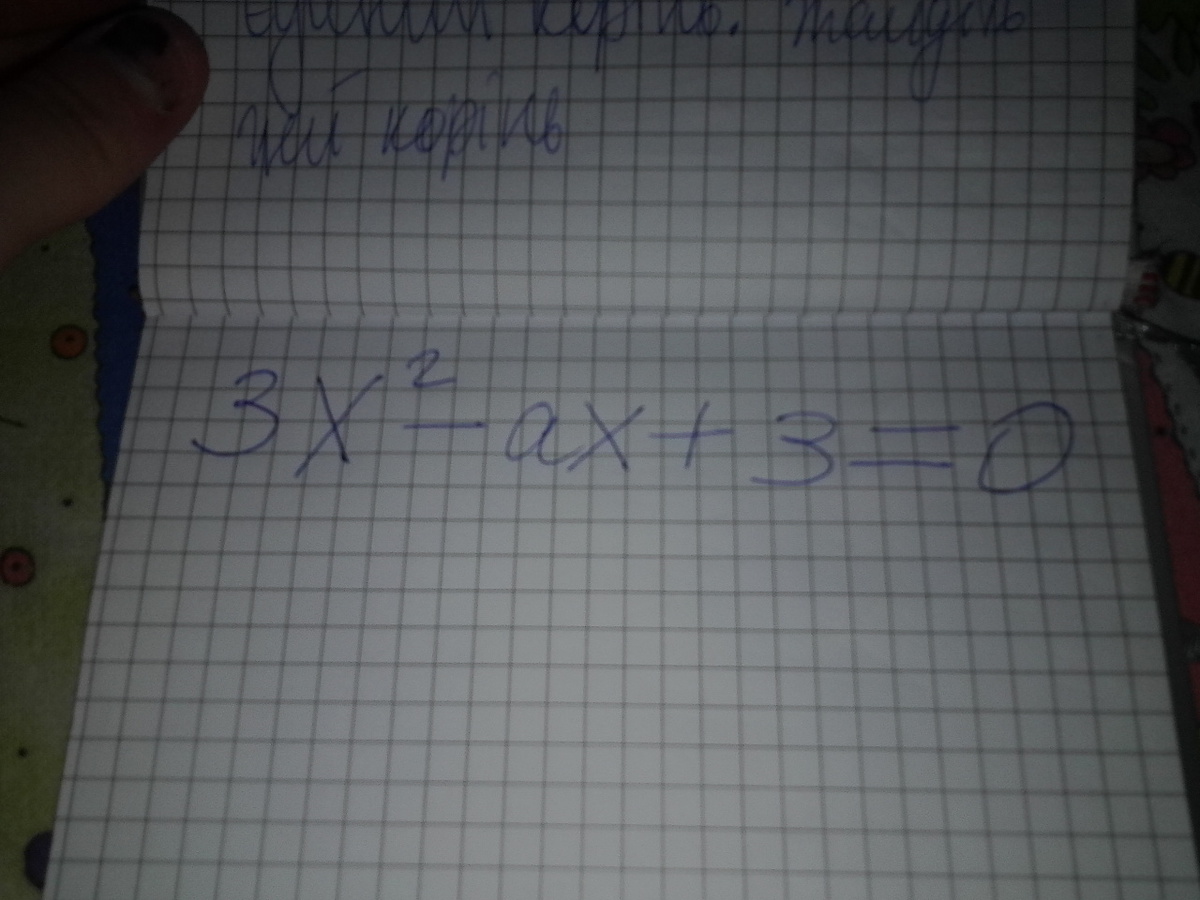 єдиний корінь. Знайдіть
цей корінь
3x² - ax + 3 = 0